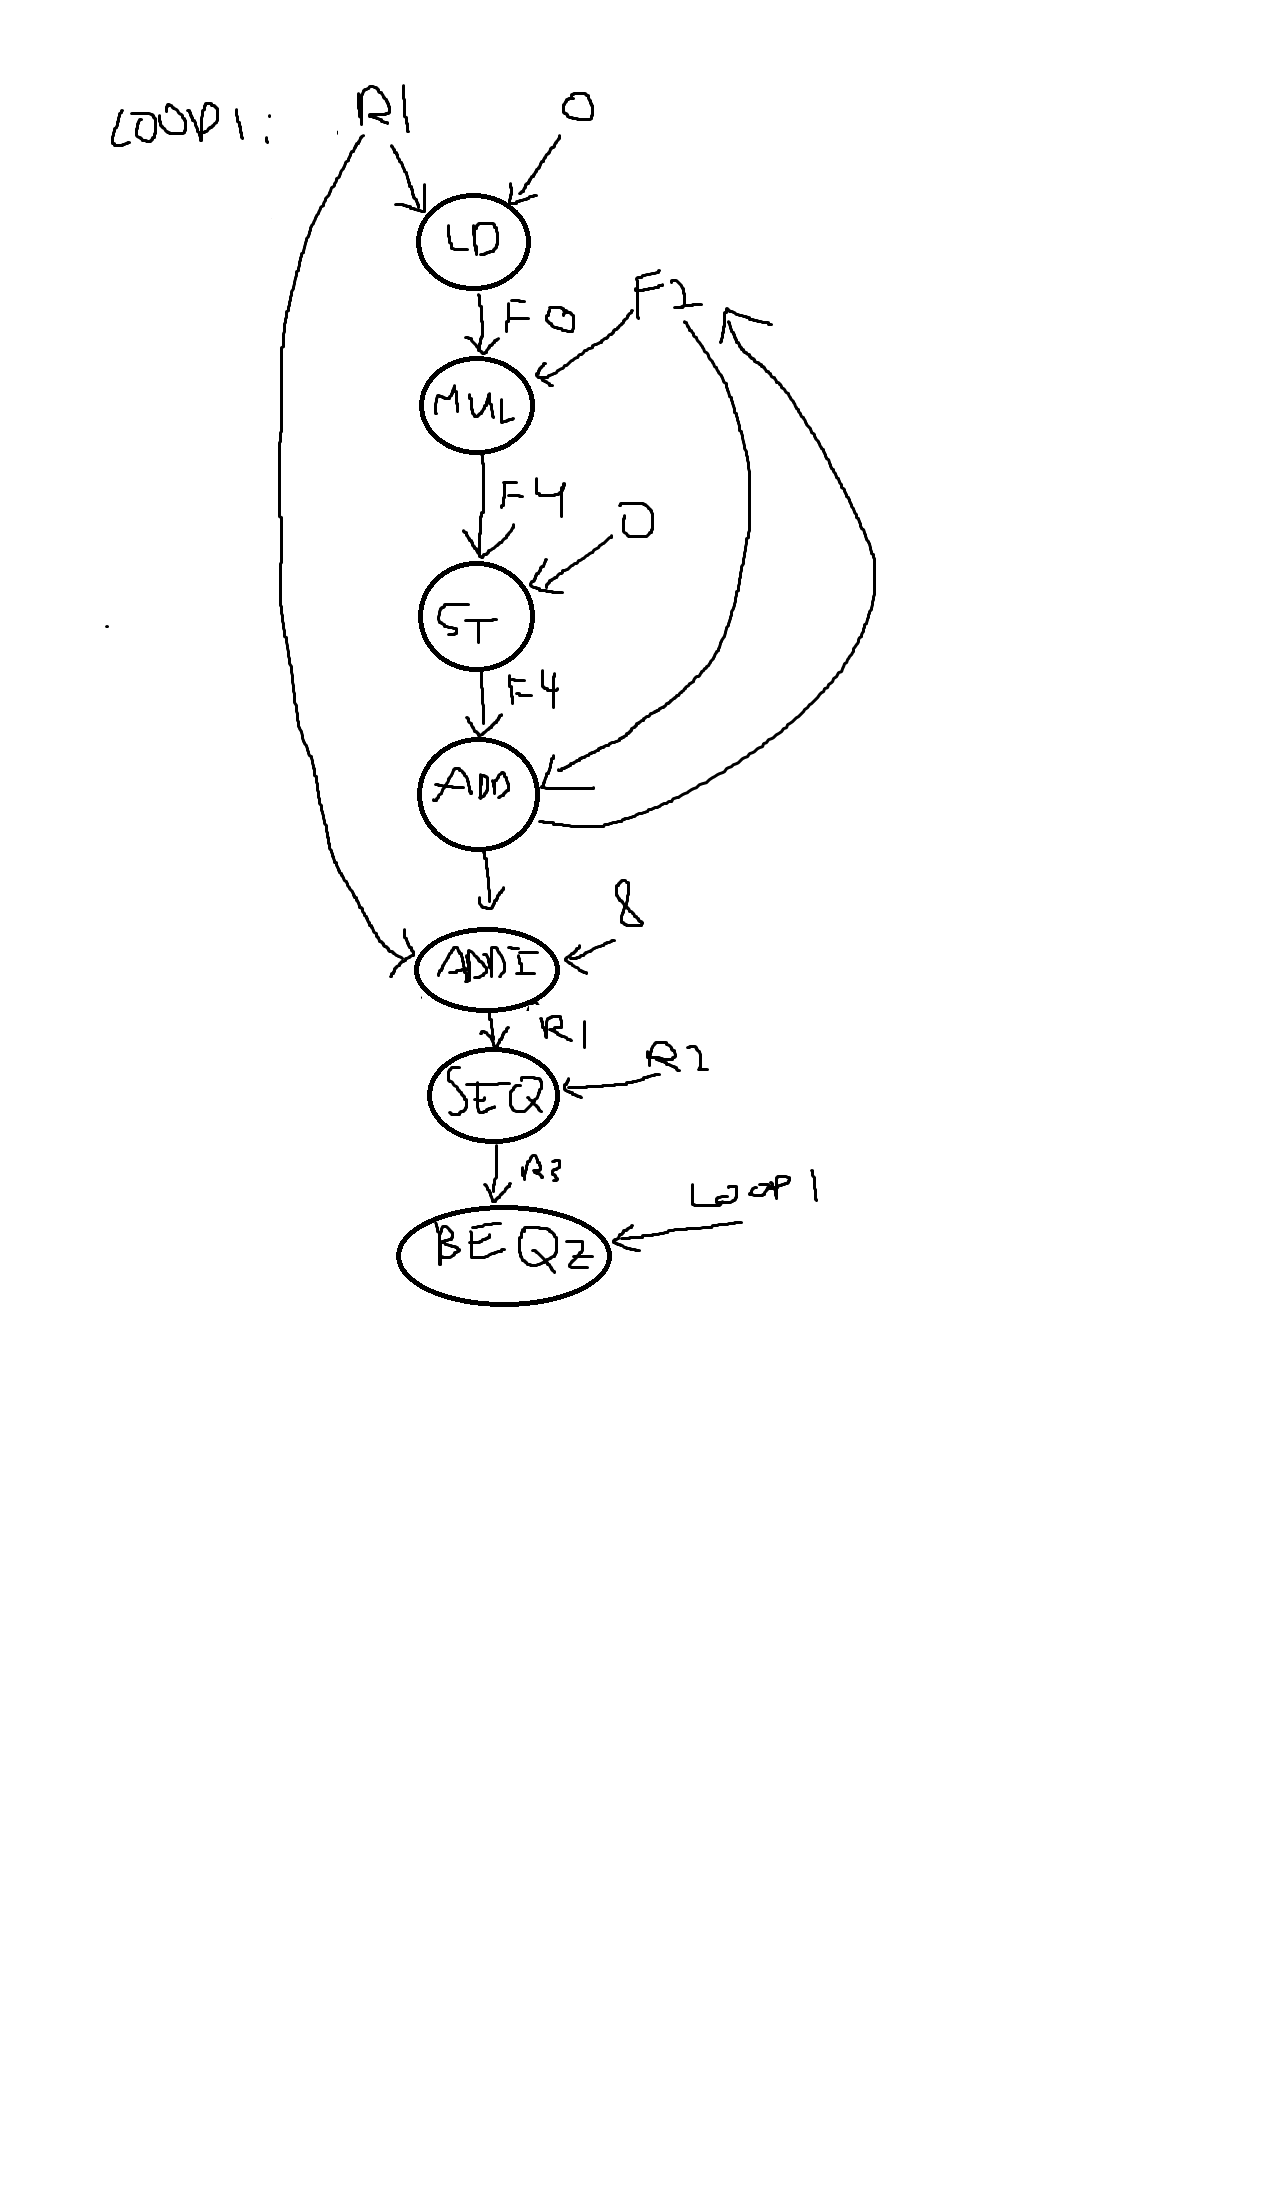 LOOP1: R1 0
LD
F0 F2
MUL
F4 0
ST
F4
ADD
8
ADDI
R1 R2
SEQ
R3 LOOP1
BEQZ